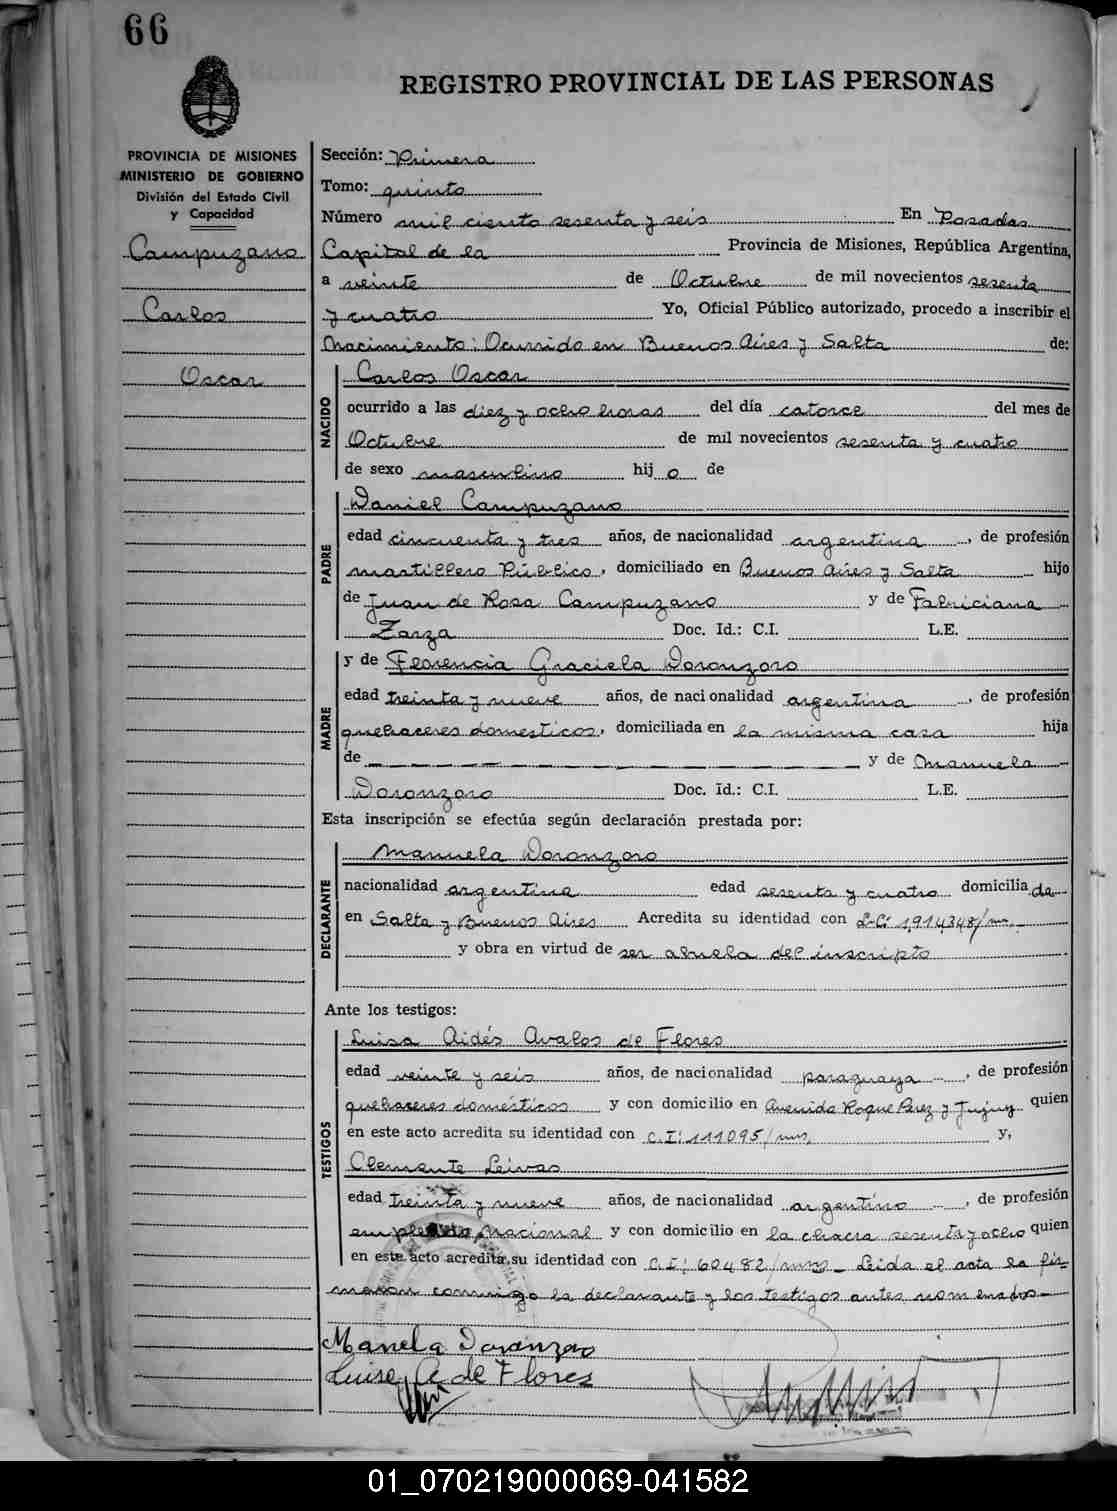 66
REGISTRO PROVINCIAL DE LAS PERSONAS
PROVINCIA DE MISIONES
MINISTERIO DE GOBIERNO
División del Estado Civil
y Capacidad
Campuzano
Carlos
Oscar
Sección: Primera
Tomo: quinto
Número mil ciento sesenta y seis En Posadas
Capital de la Provincia de Misiones, República Argentina,
a veinte de Octubre de mil novecientos sesenta
y cuatro Yo, Oficial Público autorizado, procedo a inscribir el
Nacimiento: Ocurrido en Buenos Aires y Salta de:
NACIDO
Carlos Oscar
ocurrido a las diez y ocho horas del día catorce del mes de
Octubre de mil novecientos sesenta y cuatro
de sexo masculino hij o de
PADRE
Daniel Campuzano
edad cincuenta y tres años, de nacionalidad argentina, de profesión
martillero Público, domiciliado en Buenos Aires y Salta hijo
de Juan de Rosa Campuzano y de Fabriciana
Zarza Doc. Id.: C.I. L.E.
MADRE
y de Florencia Graciela Doronzoro
edad treinta y nueve años, de nacionalidad argentina, de profesión
quehaceres domesticos, domiciliada en la misma casa hija
de — — — — — — — — — — — y de Manuela
Doronzoro Doc. Id.: C.I. L.E.
Esta inscripción se efectúa según declaración prestada por:
DECLARANTE
Manuela Doronzoro
nacionalidad argentina edad sesenta y cuatro domicilia da
en Salta y Buenos Aires Acredita su identidad con L.C: 1,914,348/mns.
y obra en virtud de ser abuela del inscripto
Ante los testigos:
TESTIGOS
Luisa Aidés Avalos de Flores
edad veinte y seis años, de nacionalidad paraguaya, de profesión
quehaceres domésticos y con domicilio en Avenida Roque Perez y Jujuy quien
en este acto acredita su identidad con C.I: 111095/mns, y,
Clemente Leivas
edad treinta y nueve años, de nacionalidad argentino, de profesión
empleado nacional y con domicilio en la chacra sesenta y ocho quien
en este acto acredita su identidad con C.I: 60482/mns — Leida el acta la fir-
maron conmigo la declarante y los testigos antes nomenados—
Manela Doronzoro
Luise A de Flores
01_070219000069-041582